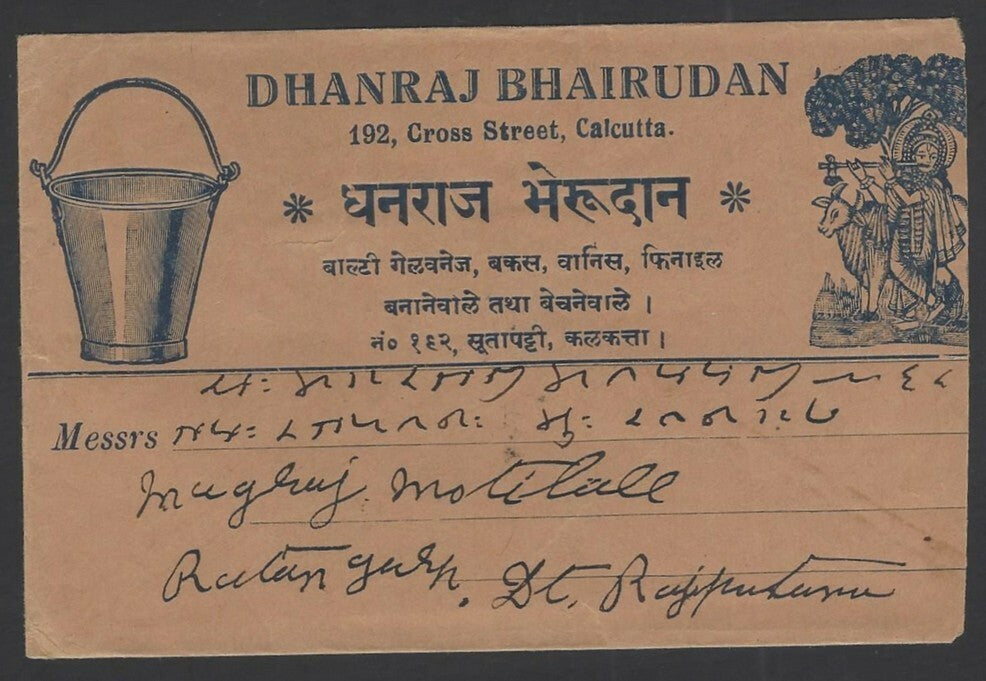 DHANRAJ BHAIRUDAN
192, Cross Street, Calcutta.
* धनराज भेरूदान *
बाल्टी गेलवनेज, बकस, वार्निस, फिनाइल
बनानेवाले तथा बेचनेवाले ।
नं० १९२, सूतापट्टी, कलकत्ता ।
Messrs
Magraj Motilall
Ratangarh. Dt. Rajputana